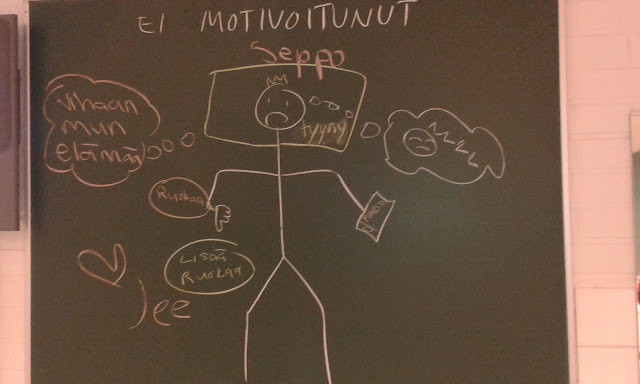 EI MOTIVOITUNUT
Seppo
Vihaan
mun
elämää
tyyny
Ruokaa
Lisää
Ruokaa
Jee